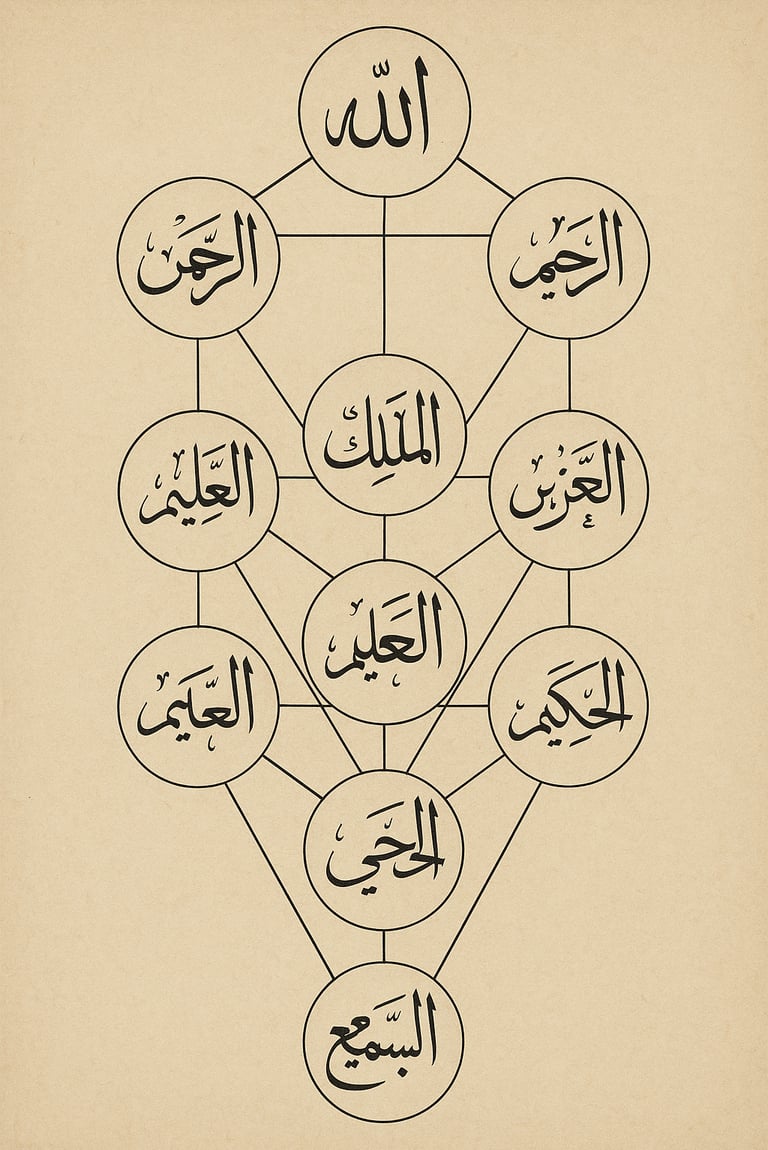 الله
الرحيم
الرحمن
الملك
العزيز
العليم
العليم
الحكيم
العليم
الحي
السميع